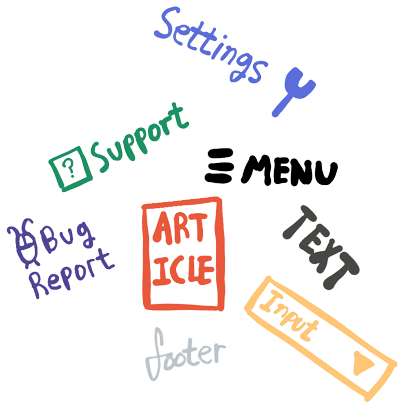 Settings
? Support
MENU
Bug
Report
ART
ICLE
TEXT
Input
footer